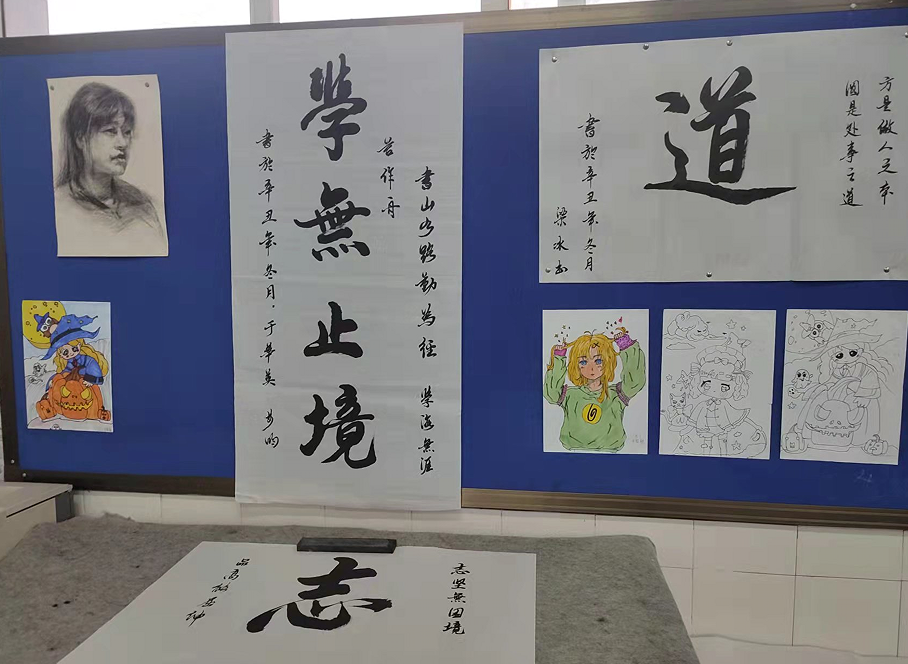 書山有路勤為徑 學海無涯
苦作舟
學無止境
書於辛丑年冬月
方是做人之本
圆是处事之道
道
書於辛丑年冬月
梁冰書
志坚無困境
志
品高